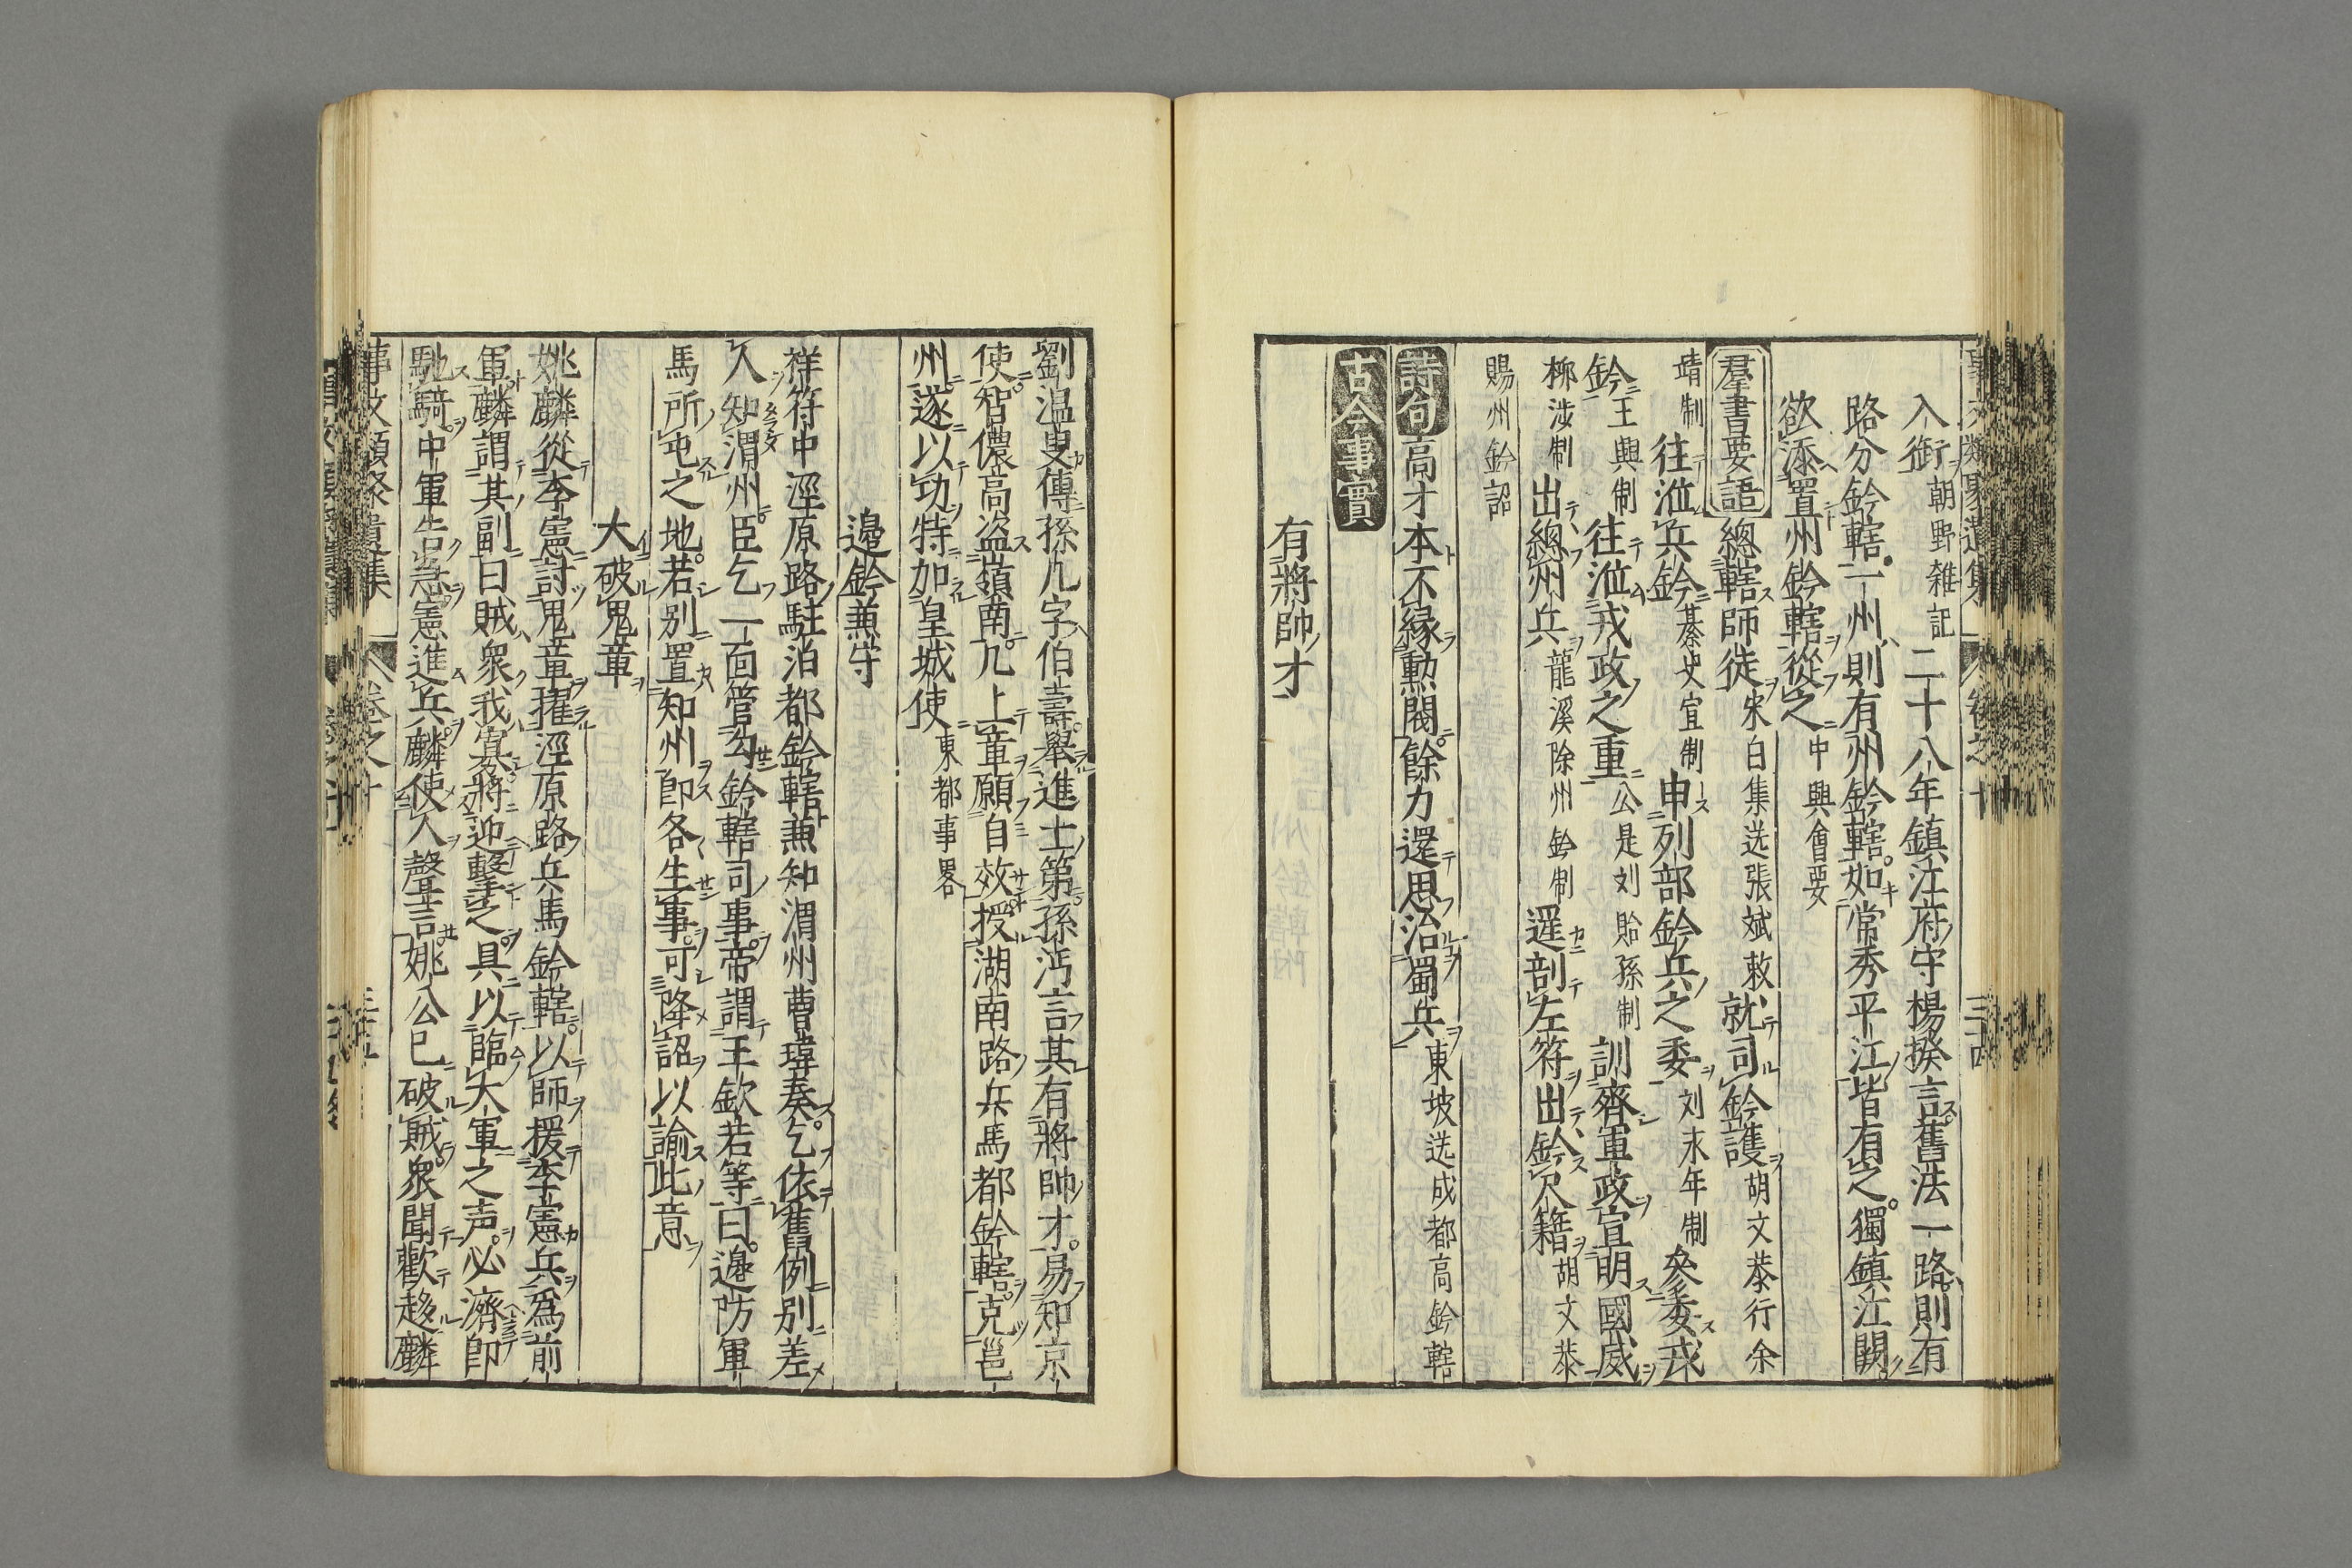 入銜朝野雜記二十八年鎮江府守楊揆言舊法一路則有
路分鈐轄一州則有州鈐轄如常秀平江皆有之獨鎮江闕
欲添置州鈐轄從之中興會要
羣書要語總轄師徒宋白集迯張斌敕就司鈐護胡文恭行余
靖制往涖兵鈐綦史宜制申列部鈐兵之委刘末年制叅委戎
鈐王與制往涖戎政之重公是刘貽孫制訓齊軍政宣明國威
柳涉制出總州兵龍溪除州鈐制遥剖左符出鈐尺籍胡文恭
賜州鈐詔
詩句高才本不緣勲閥餘力還思治蜀兵東坡迯成都高鈐轄
古今事實
有將帥才
劉温叟傳孫几字伯壽舉進士第孫沔言其有將帥才易知京
使智儂高盗嶺南几上章願自效授湖南路兵馬都鈐轄克邕
州遂以功特加皇城使東都事畧
邊鈐兼守
祥符中涇原路駐泊都鈐轄兼知渭州曹瑋奏乞依舊例别差
人知渭州臣乞一面管勾鈐轄司事帝謂王欽若等曰邊防軍
馬所屯之地若别置知州卽各生事可降詔以諭此意
大破鬼章
姚麟從李憲討鬼章擢涇原路兵馬鈐轄以師援李憲兵爲前
軍麟謂其副曰賊衆我寡將迎擊之具以臨大軍之声必濟卽
馳騎中軍告急憲進兵麟使人聲言姚公已破賊衆聞歡趍麟